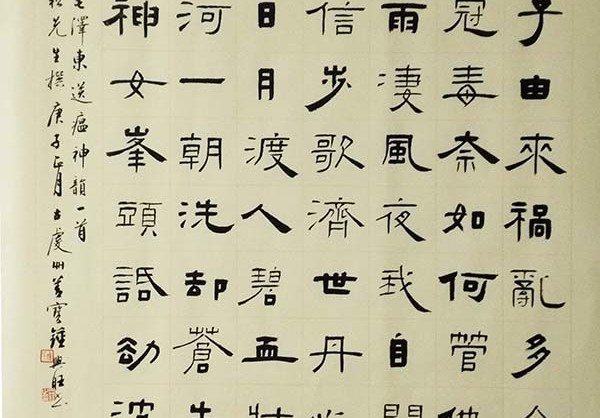 由來禍亂多
冠毒奈如何管
雨淒風夜我自
信步歌濟世丹
日月渡人碧血
河一朝洗却蒼
神女峯頭話劫波
澤東送瘟神韻一首
先生撰庚子正月古虔州